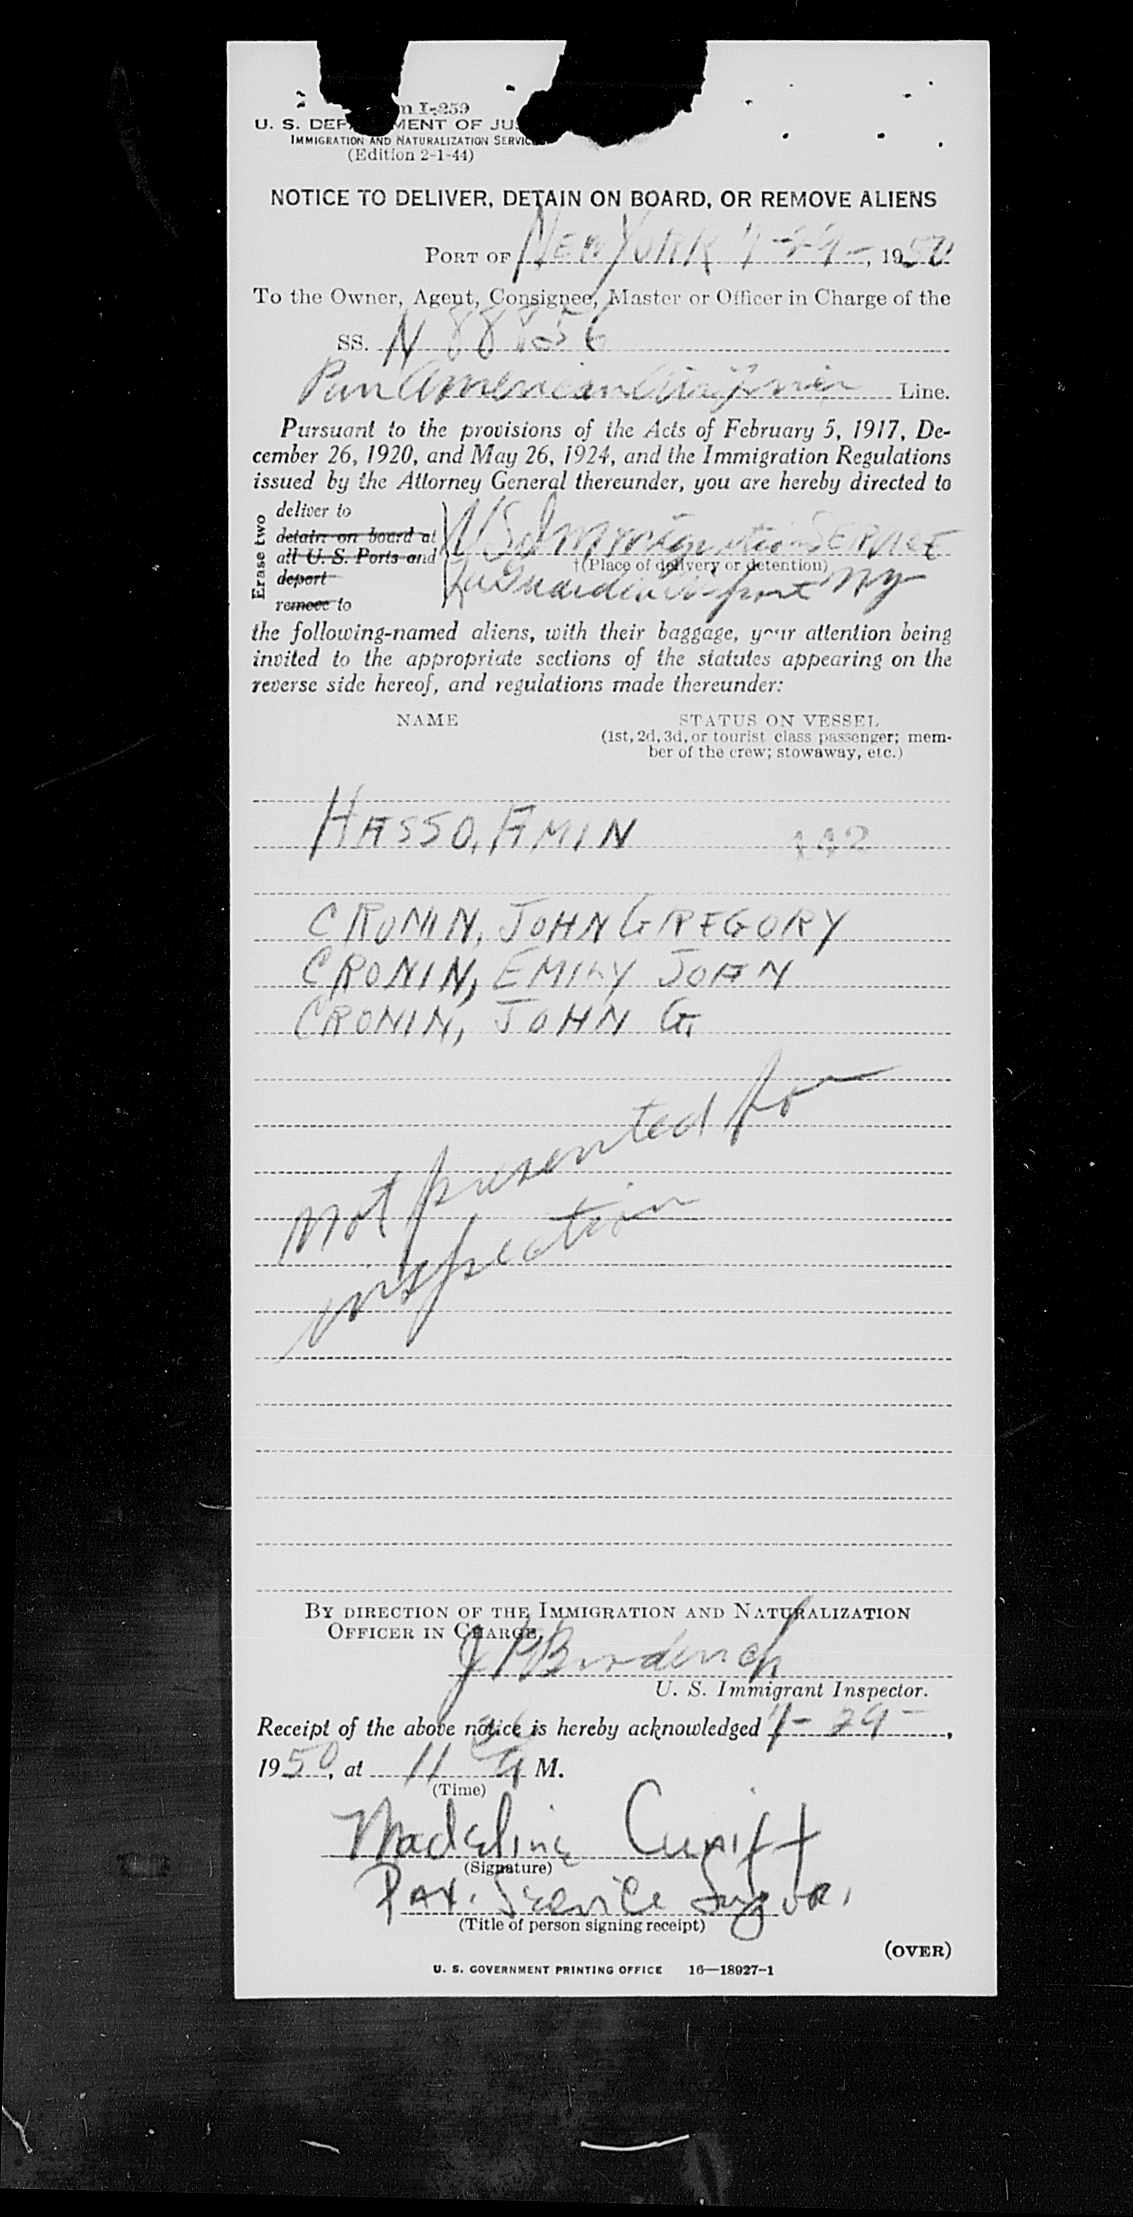 m I-259
U. S. DEP MENT OF JUS
IMMIGRATION AND NATURALIZATION SERVICE
(Edition 2-1-44)
NOTICE TO DELIVER, DETAIN ON BOARD, OR REMOVE ALIENS
PORT OF NEW YORK 7-29-, 1950
To the Owner, Agent, Consignee, Master or Officer in Charge of the
SS. N 88856
Pan American Airways Line.
Pursuant to the provisions of the Acts of February 5, 1917, De-
cember 26, 1920, and May 26, 1924, and the Immigration Regulations
issued by the Attorney General thereunder, you are hereby directed to
Erase two
deliver to
detain on board at
all U. S. Ports and
deport
remove to
US Immigration SERVICE
†(Place of delivery or detention)
La Guardia Airport NY
the following-named aliens, with their baggage, your attention being
invited to the appropriate sections of the statutes appearing on the
reverse side hereof, and regulations made thereunder:
NAME STATUS ON VESSEL
(1st, 2d, 3d, or tourist class passenger; mem-
ber of the crew; stowaway, etc.)
HASSO, AMIN 142
CRONIN, JOHN GREGORY
CRONIN, EMILY JOAN
CRONIN, JOHN G.
not presented for
inspection
BY DIRECTION OF THE IMMIGRATION AND NATURALIZATION
OFFICER IN CHARGE,
J P Broderick
U. S. Immigrant Inspector.
Receipt of the above notice is hereby acknowledged 7-29-,
1950, at 11 A M.
(Time)
Madeline Cunift
(Signature)
Pax. Service Supvr.
(Title of person signing receipt)
(OVER)
U. S. GOVERNMENT PRINTING OFFICE 16—18927-1